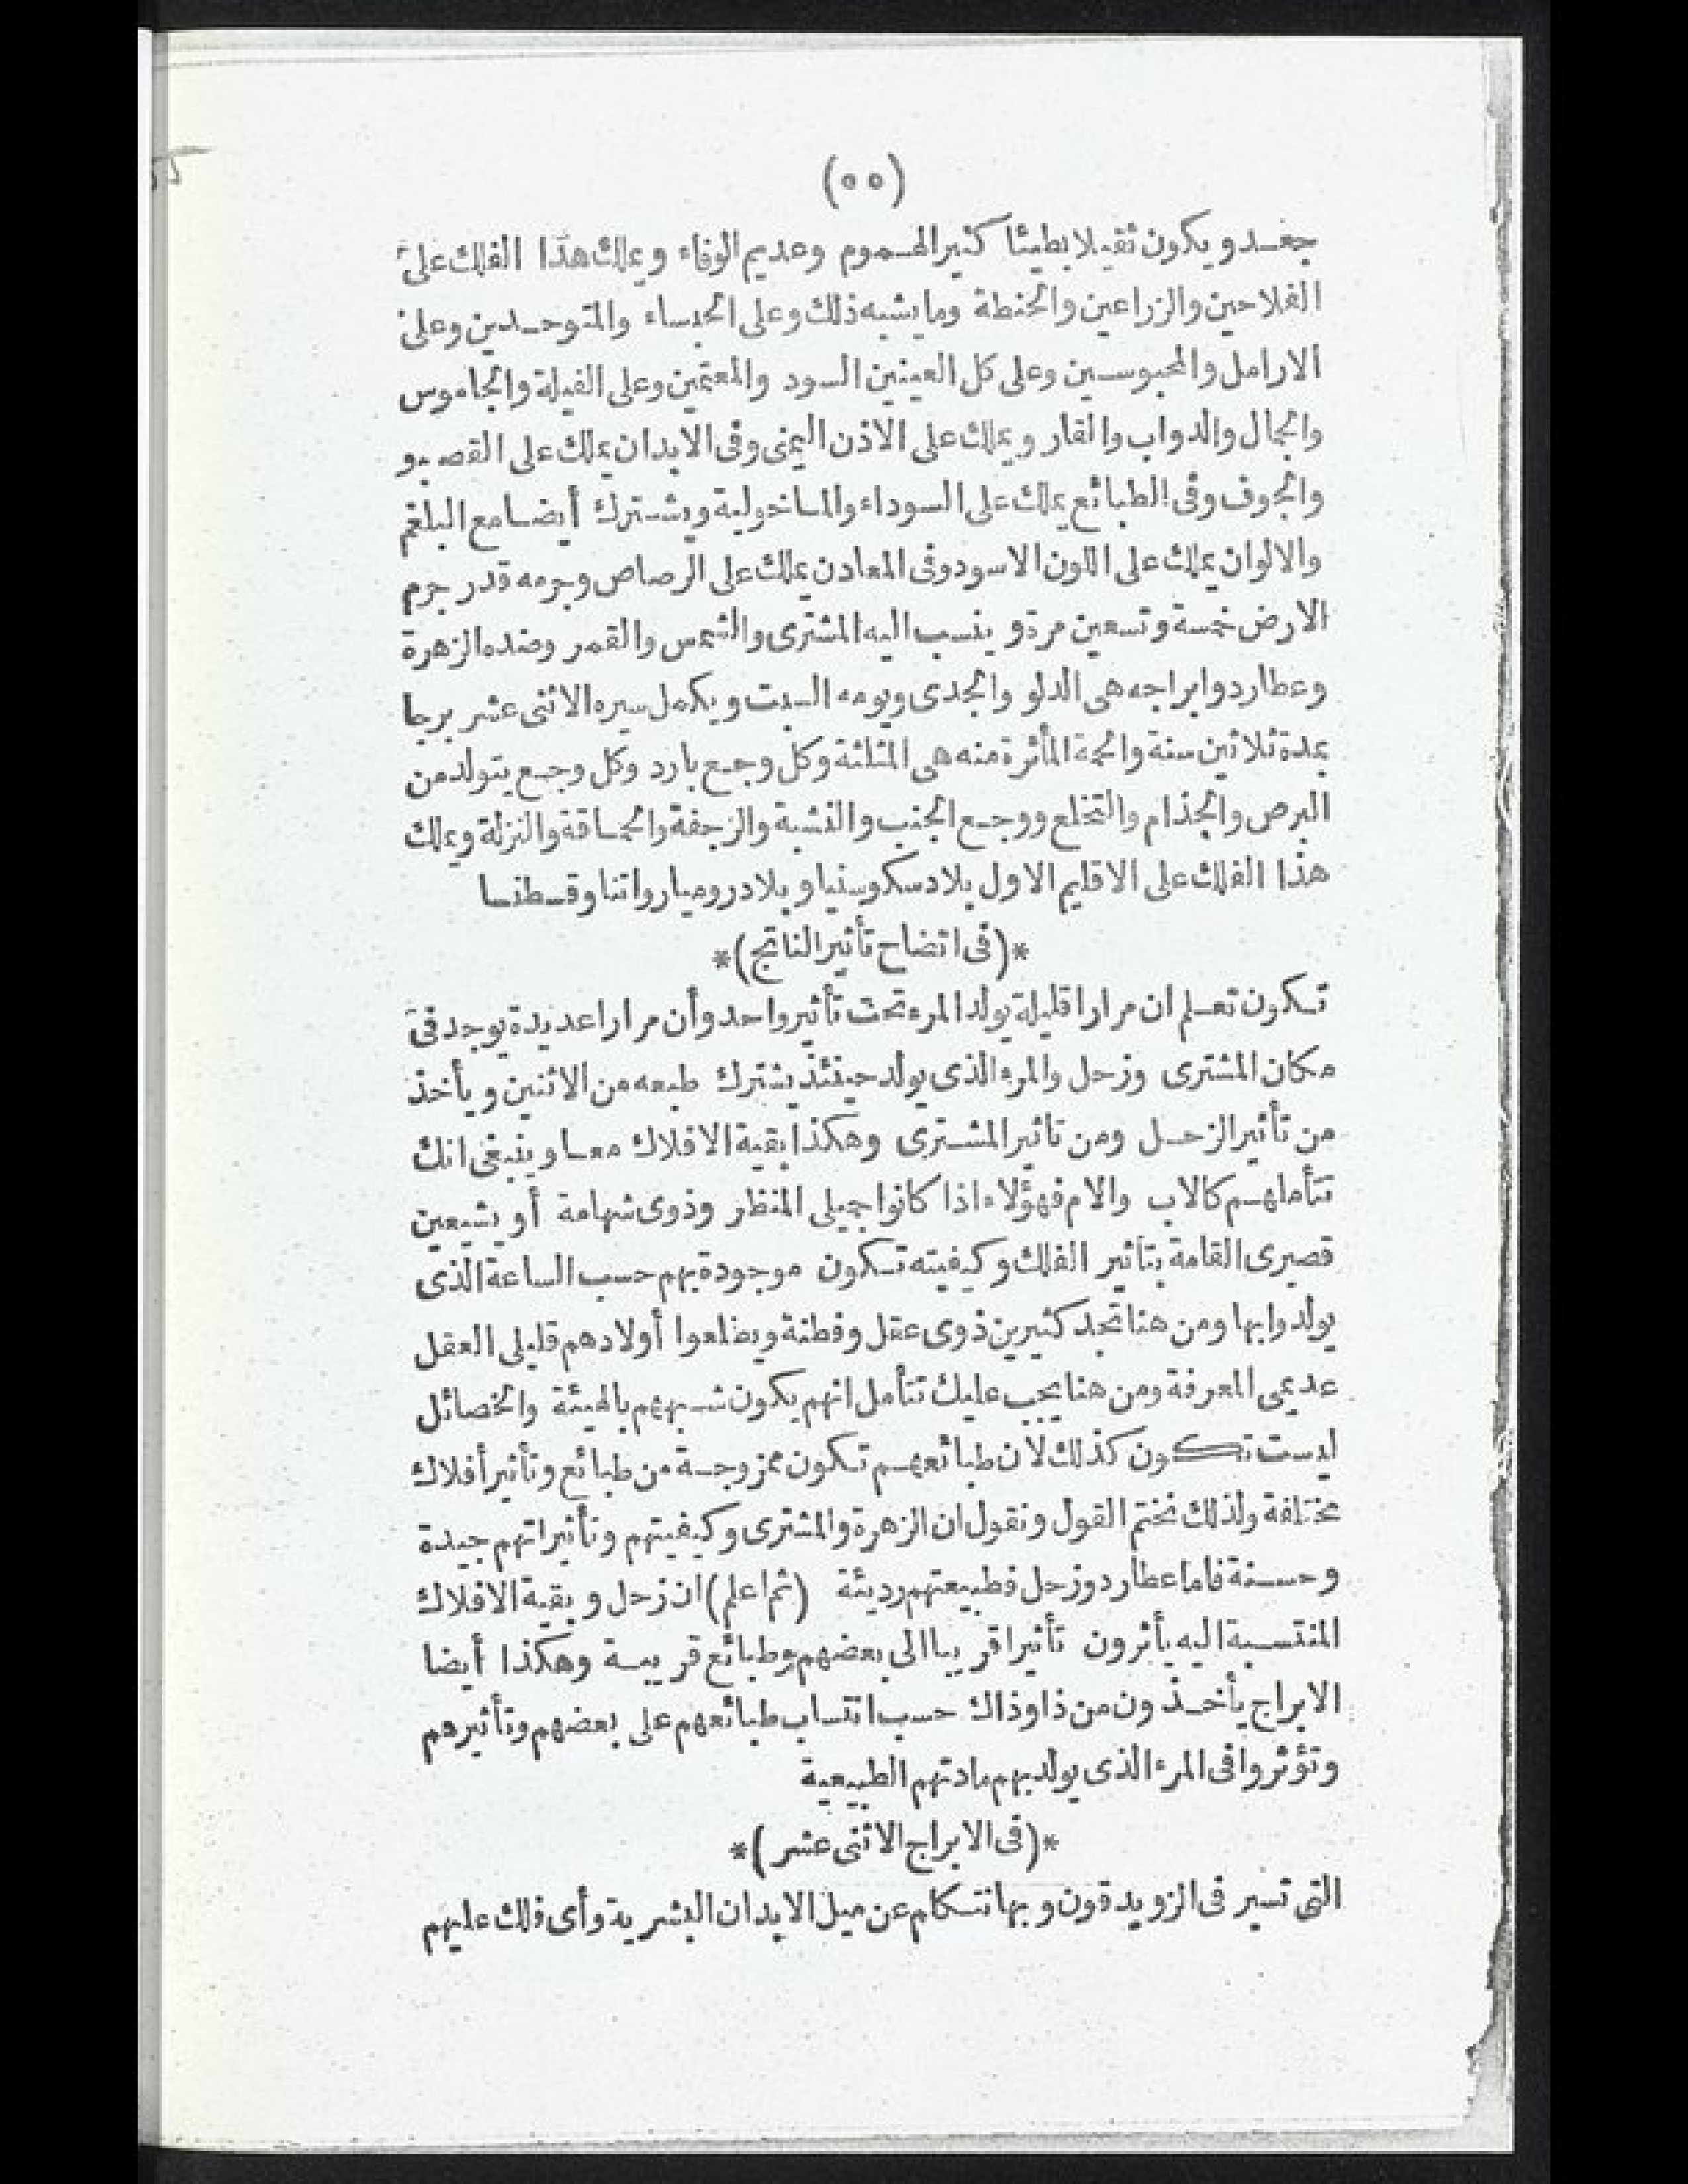 (٥٥)
جعد ويكون ثقيلا بطيئا كثير الهموم وعديم الوفاء ويملك هذا الفلك على
الفلاحين والزراعين والحنطة وما يشبه ذلك وعلى الحبساء والمتوحدين وعلى
الارامل والمحبوسين وعلى كل العينين السود والمعتمين وعلى الفيلة والجاموس
والجمال والدواب والقار ويملك على الاذن اليمنى وفى الابدان يملك على القصبو
والجوف وفى الطبائع يملك على السوداء والماخولية ويشترك أيضا مع البلغم
والالوان يملك على اللون الاسود وفى المعادن يملك على الرصاص وجرمه قدر جرم
الارض خمسة وتسعين مرة و ينسب اليه المشترى والشمس والقمر وضده الزهرة
وعطارد وابراجه هى الدلو والجدى ويومه السبت ويكمل سيره الاثنى عشر برجا
بمدة ثلاثين سنة والحمة المأثرة منه هى المثلثة وكل وجع بارد وكل وجع يتولد من
البرص والجذام والتخلع ووجع الجنب والنشبة والرجفة والحماقة والنزلة ويملك
هذا الفلك على الاقليم الاول بلاد سكوسنيا و بلاد روميا رواتنا وقسطنسا
*(فى اتضاح تأثير الناتج)*
تكون تعلم ان مرارا قليلة يولد المرء تحت تأثير واحد وأن مرارا عديدة يوجد فى
مكان المشترى وزحل والمرء الذى يولد حينئذ يشترك طبعه من الاثنين و يأخذ
من تأثير الزحل ومن تاثير المشترى وهكذا بقية الافلاك معا و ينبغى انك
تتأملهم كالاب والام فهؤلاء اذا كانوا جميلى المنظر وذوى شهامة أو بشيعين
قصيرى القامة بتاثير الفلك وكيفيته تكون موجودة بهم حسب الساعة الذى
يولدوا بها ومن هنا تجد كثيرين ذوى عقل وفطنة ويضلعوا أولادهم قليلى العقل
عديمى المعرفة ومن هنا يجب عليك تتأمل انهم يكون شبههم بالهيئة والخصائل
ليست تكون كذلك لأن طبائعهم تكون ممزوجة من طبائع وتأثير أفلاك
مختلفة ولذلك نختم القول ونقول ان الزهرة والمشترى وكيفيتهم وتأثيراتهم جيدة
وحسنة فاما عطارد وزحل فطبيعتهم رديئة (ثم اعلم) ان زحل و بقية الافلاك
المنتسبة اليه يأثرون تأثيرا قريبا الى بعضهم وطبائع قريبة وهكذا أيضا
الابراج يأخذون من ذا وذاك حسب انتساب طبائعهم على بعضهم وتأثيرهم
وتؤثروا فى المرء الذى يولد بهم مادتهم الطبيعية
*(فى الابراج الاثنى عشر)*
التى تسير فى الزويدقون و بها نتكلم عن ميل الابدان البشرية وأى فلك عليهم